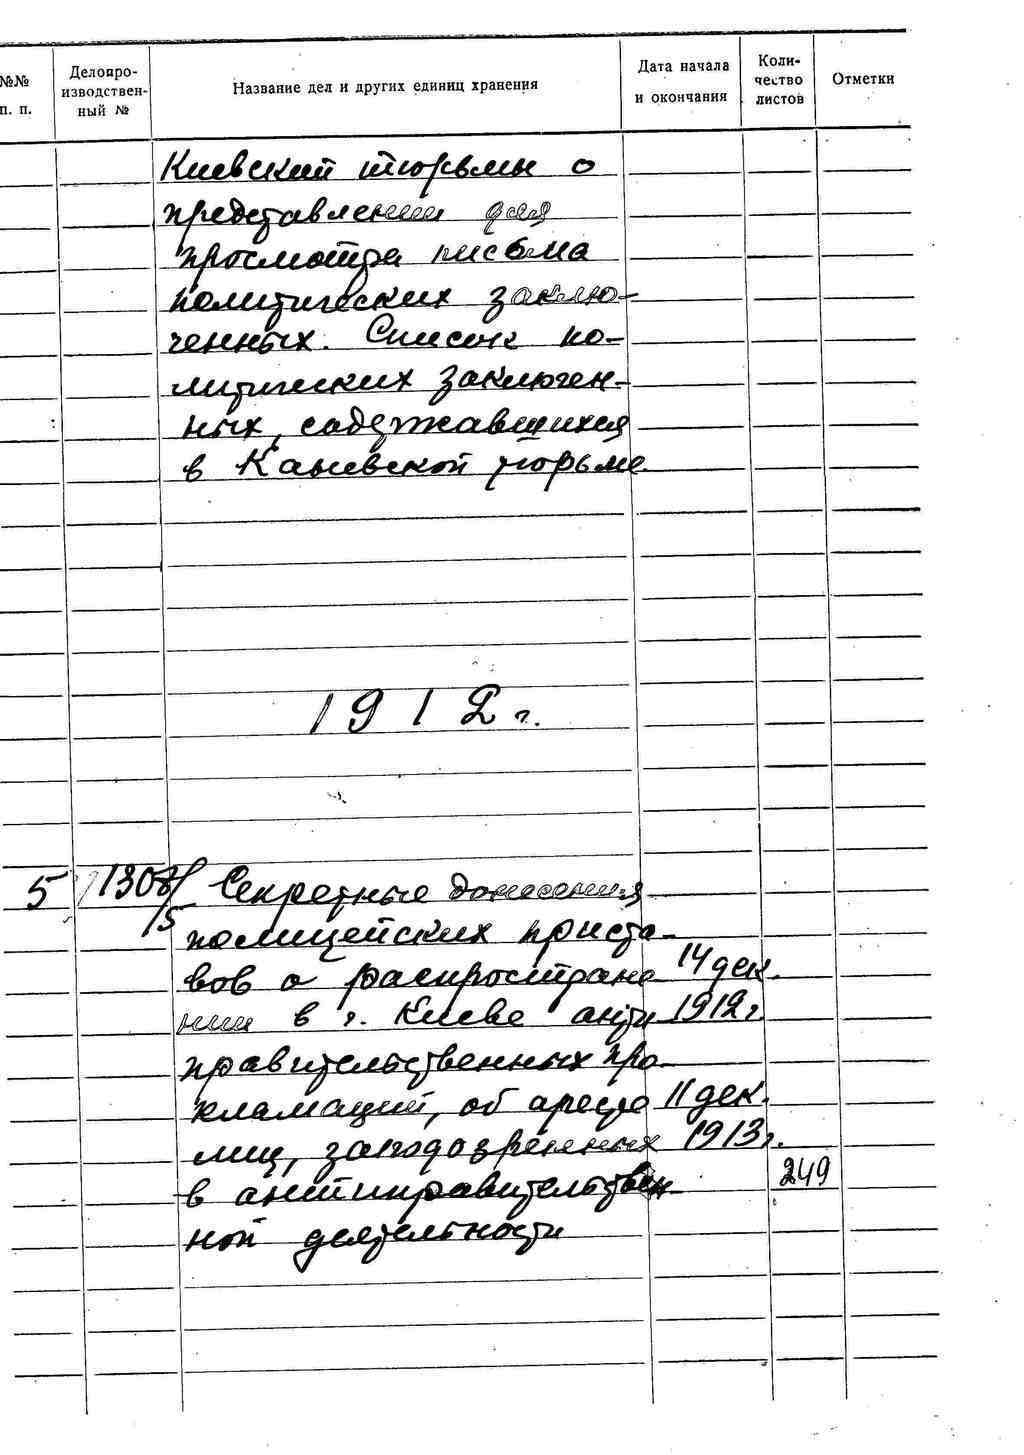 №№
п. п.
Делопро-
изводствен-
ный №
Название дел и других единиц хранения
Дата начала
и окончания
Коли-
чество
листов
Отметки
Киевский тюрьмы о
представлении для
просмотра письма
политических заклю-
ченных. Список по-
литических заключен-
ных, содержавшихся
в Каневской тюрьме
1912 г.
5 Секретные донесения
полицейских приста-
вов о распростране 14 дек.
нии в г. Киеве анти 1912 г.
правительственных про-
кламаций, об аресте 11 дек.
лиц, заподозренных 1913 г.
в антиправительствен- 249
ной деятельности